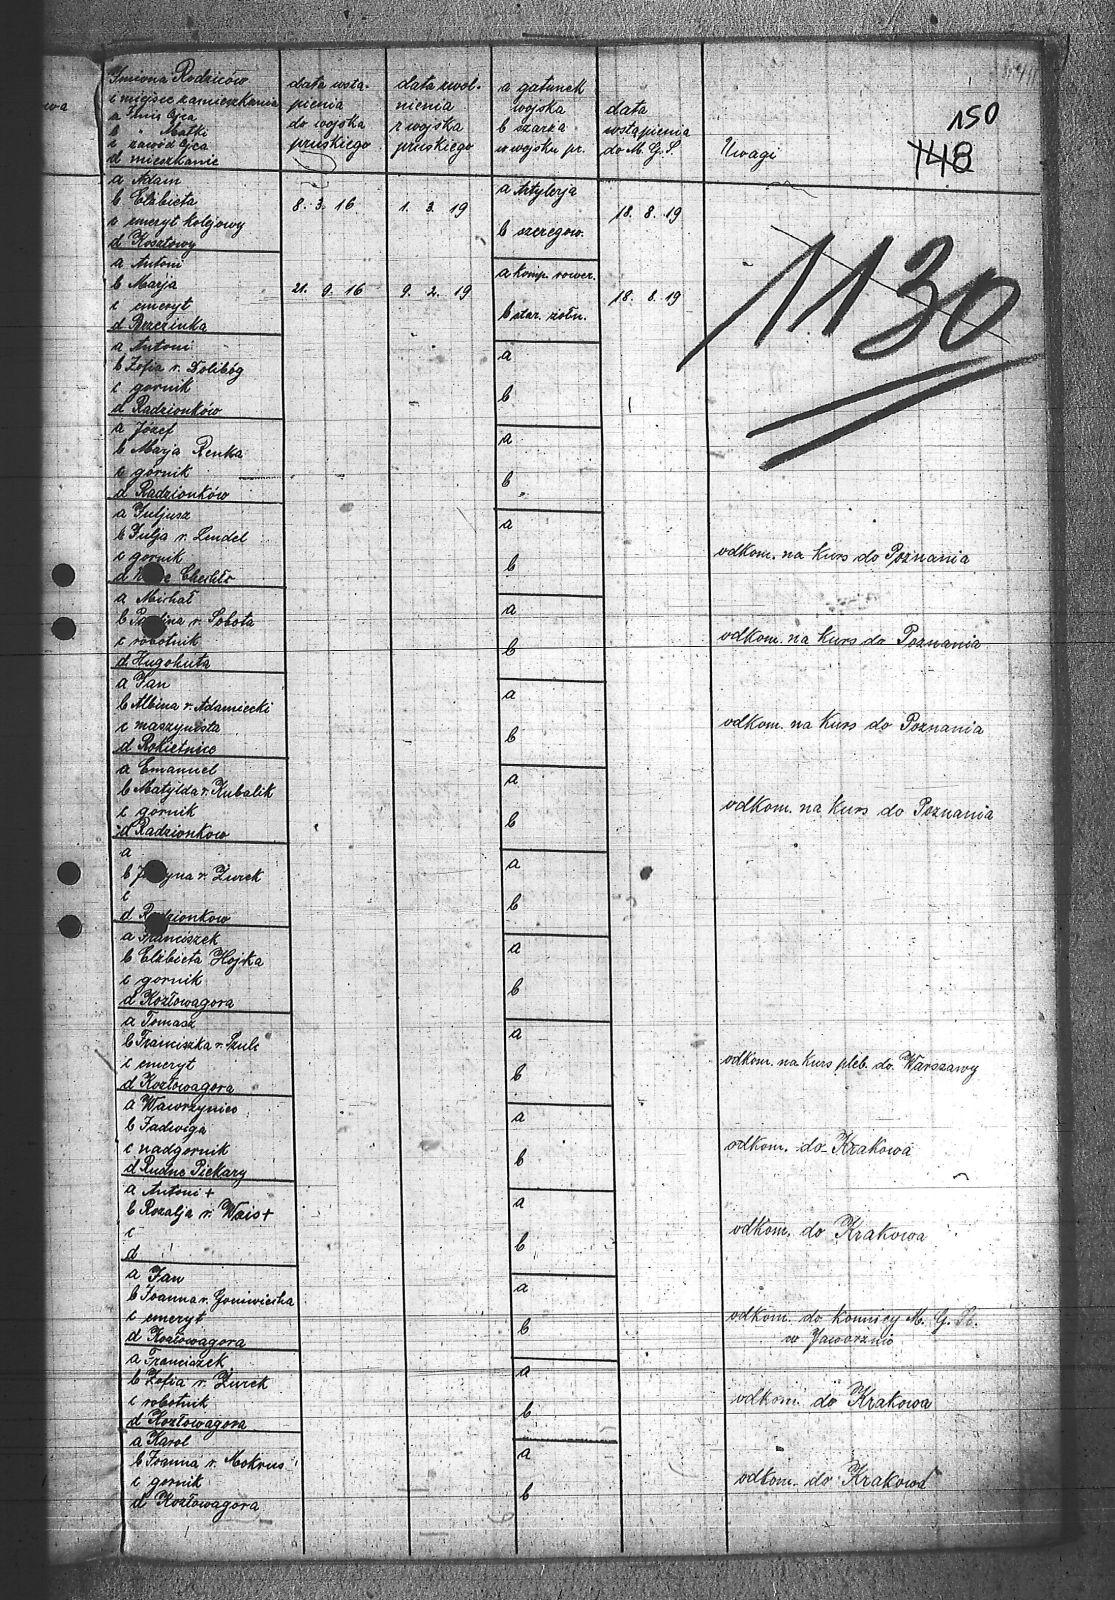 150
148
wa
Imiona Rodziców
i miejsce zamieszkania
a Imię Ojca
b " Matki
c zawód Ojca
d mieszkanie
data wstą-
pienia
do wojska
pruskiego
data zwol-
nienia
z wojska
pruskiego
a gatunek
wojska
b szarża
w wojsku pr.
data
wstąpienia
do M. G. S.
Uwagi
1130
a Adam
b Elżbieta
c emeryt kolejowy
d Kosztowy
8. 3. 16
1. 3. 19
a Artylerja
b szeregow.
18. 8. 19
a Antoni
b Marja
c emeryt
d Brzezinka
21. 9. 16
9. 2. 19
a komp. rower.
b star. żołn.
18. 8. 19
a Antoni
b Zofia r. Dolibóg
c gornik
d Radzionków
a
b
a Józef
b Marja Renka
c górnik
d Radzionków
a
b
a Juljusz
b Julja r. Lendel
c gornik
d Chechło
a
b
odkom. na kurs do Poznania
a Michał
b r. Sobota
c robotnik
d Hugohuta
a
b
odkom. na kurs do Poznania
a Jan
b Albina r. Adamiecki
c maszynista
d Rokietnice
a
b
odkom. na kurs do Poznania
a Emanuel
b Matylda r. Kubalik
c gornik
d Radzionkow
a
b
odkom. na kurs do Poznania
a
b r. Żurek
c
d Radzionkow
a
b
a Franciszek
b Elżbieta Hojka
c gornik
d Kozłowagora
a
b
a Tomasz
b Franciszka r. Szulc
c emeryt
d Kozłowagora
a
b
odkom. na kurs pleb. do Warszawy
a Wawrzyniec
b Jadwiga
c nadgornik
d Rudne Piekary
a
b
odkom. do Krakowa
a Antoni +
b Rozalja r. Wais +
c
d
a
b
odkom. do Krakowa
a Jan
b Joanna r.
c emeryt
d Kozłowagora
a
b
odkom. do konnicy M. G. Śl.
w Jaworznie
a Franciszek
b Zofia r. Żurek
c robotnik
d Kozłowagora
a
b
odkom. do Krakowa
a Karol
b Joanna r. Mokrus
c gornik
d Kozłowagora
a
b
odkom. do Krakowa